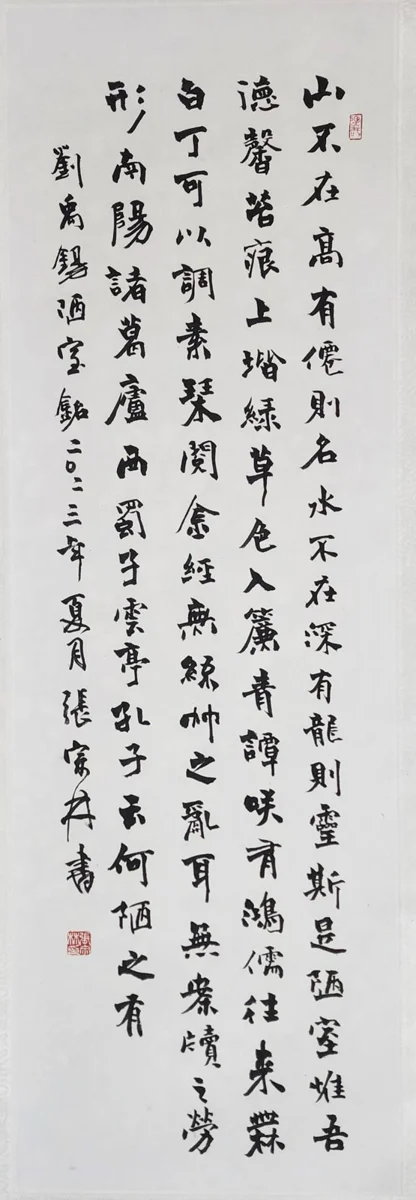 山不在高有僊則名水不在深有龍則靈斯是陋室惟吾
德馨苔痕上堦緑草色入簾青譚咲有鴻儒往来無
白丁可以調素琴閱金經無絲竹之亂耳無案牘之勞
形南陽諸葛廬西蜀子雲亭孔子云何陋之有
劉禹錫陋室銘二〇二三年夏月張宗書